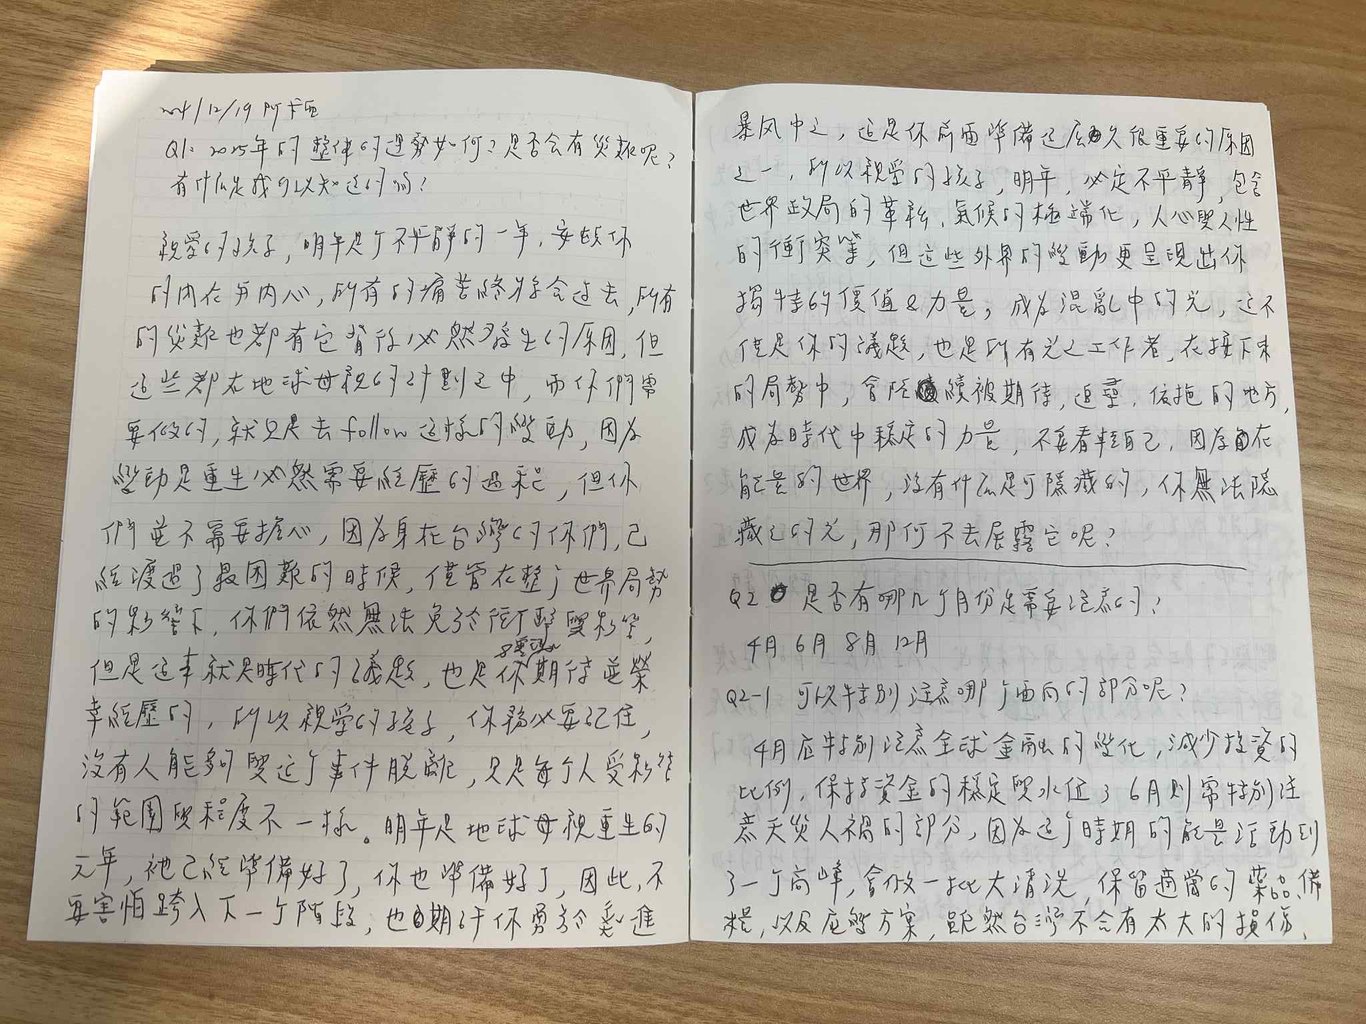 2024/12/19 阿卡西
Q1: 2025年的整體的趨勢如何?是否會有災難呢?
有什么是我可以知道的嗎?
親愛的孩子,明年是个不平靜的一年,安頓你
的內在与內心,所有的痛苦終將会过去,所有
的災難也都有它背後必然發生的原因,但
这些都在地球母親的計劃之中,而你們需
要做的,就只是去follow这樣的變動,因為
變動是重生必然需要經歷的過程,但你
們並不需要擔心,因為身在台灣的你們,已
經渡過了最困難的時候,儘管在整个世界局勢
的影響下,你們依然無法免於衝擊與影響,
但是這本就是時代的議題,也是你期待並榮
幸經歷的,所以親愛的孩子,你務必要記住,
沒有人能夠與这个事件脫離,只是每个人受影響
的範圍與程度不一樣。明年是地球母親重生的
元年,祂已經準備好了,你也準備好了,因此,不
要害怕跨入下一个階段,也期待你勇於邁進
暴风中之,這是你前面準備這麼久很重要的原因
之一,所以親愛的孩子,明年,必定不平靜,包含
世界政局的革新、氣候的極端化,人心與人性
的衝突等,但這些外界的變動更呈現出你
獨特的價值&力量,成為混亂中的光,这不
僅是你的議題,也是所有光之工作者,在接下來
的局勢中,會陸續被期待、追尋、依拖的地方,
成為時代中穩定的力量,不要看輕自己,因為在
能量的世界,沒有什么是可隱藏的,你無法隱
藏己的光,那何不去展露它呢?
Q2 是否有哪几个月份是需要注意的?
4月 6月 8月 12月
Q2-1 可以特別注意哪个面向的部分呢?
4月应特別注意全球金融的變化,減少投資的
比例,保持資金的穩定與水位;6月則需特別注
意天災人禍的部分,因為这个時期的能量活動到
了一个高峰,會做一批大清洗,保留適當的藥品、備
糧,以及应變方案,雖然台灣不会有太大的損傷,